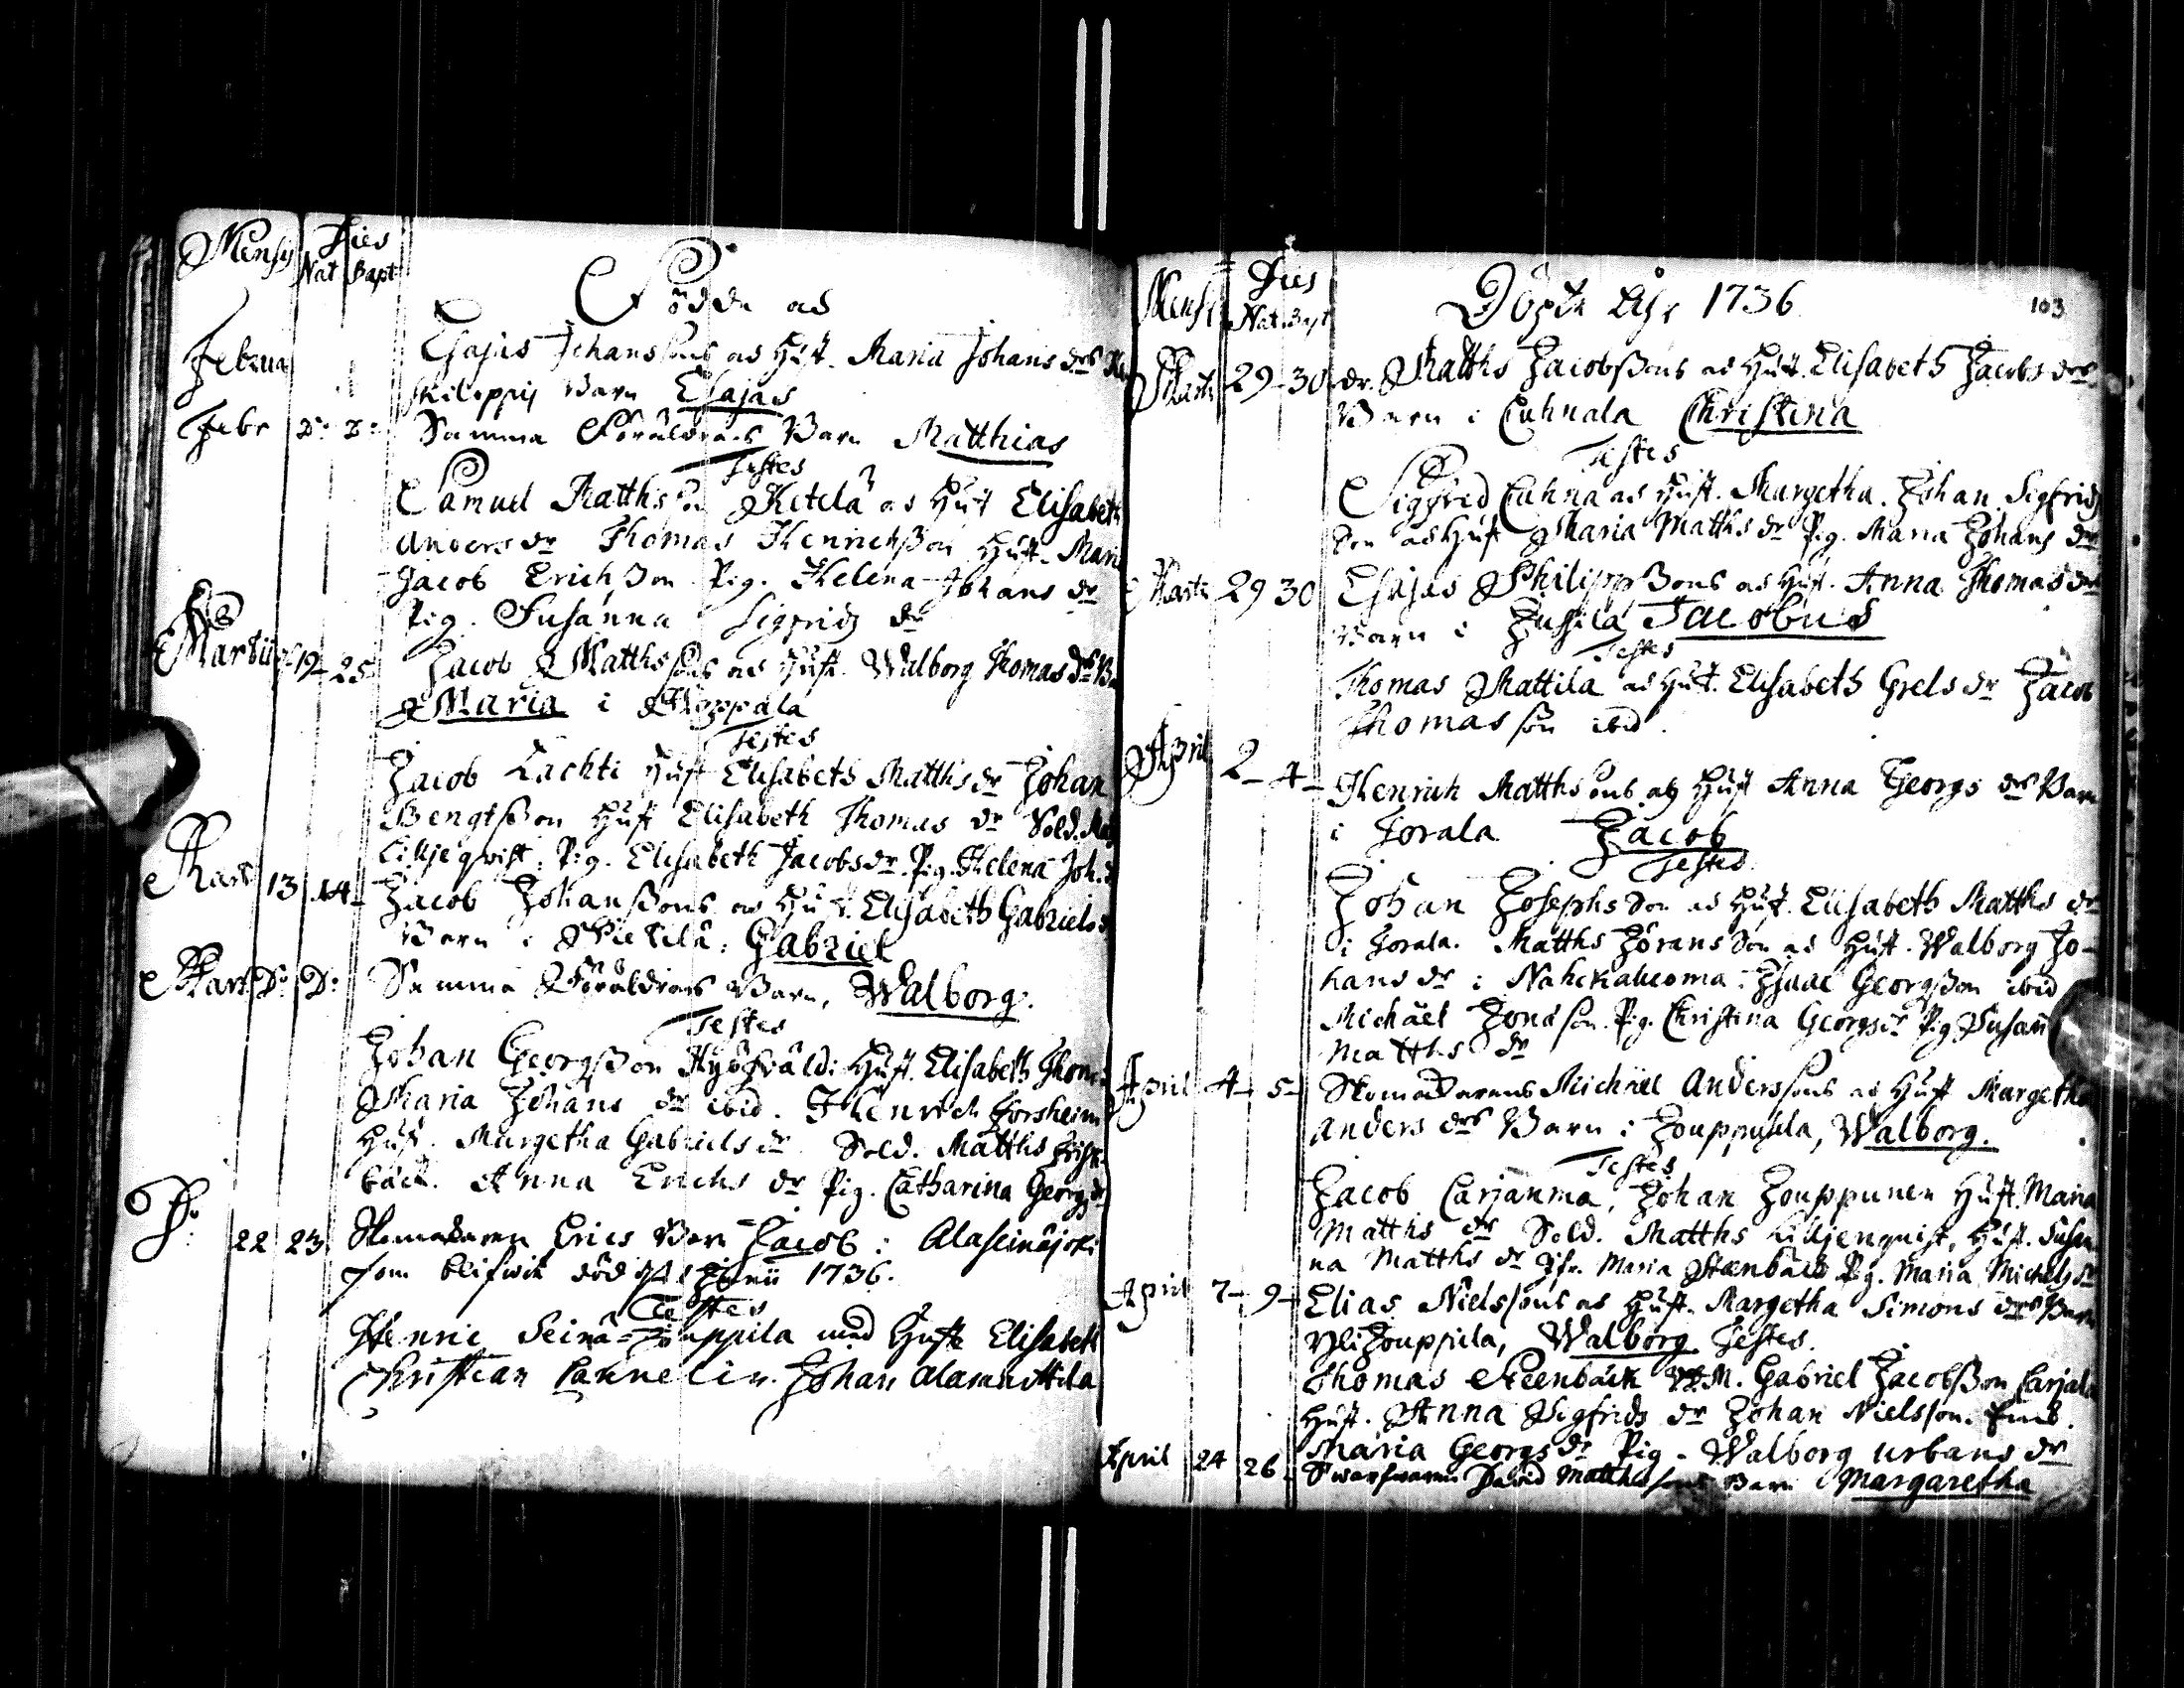 Mensis Dies
Nat Bapt
Födde as
Februa Esajas Johanssons as Hust. Maria Johans drs
Skileppij Barn Esajas
Febr D: D: Samma Föräldrars Barn Matthias
Testes
Samuel Matthsson Ketelä as Hust Elisabeth
Anders dr Thomas Henrichsson Hust. Mari
Jacob Erichsson Pig. Helena Johans dr
Pig. Susanna Sigfridz dr
Martii 19 25 Jacob Matthssons as Hust. Walborg Thomas drs
Maria i
Testes
Jacob Lachti Hust Elisabeth Matths dr Johan
Bengtsson Hust Elisabeth Thomas dr Sold.
Lilljeqwist. Pig. Elisabeth Jacobs dr. Pig. Helena Joh.
Mart 13 14 Jacob Johanssons as Hust. Elisabeth Gabriels
Barn i Pietilä: Gabriel
Mart D: D: Samma Föräldrars Barn, Walborg.
Testes
Johan Georgsson Hust. Elisabeth Thom
Maria Johans dr ibid. Henrich Forsheim
Hust. Margetha Gabriels dr Sold. Matths
bäck. Anna Erichs dr Pig. Catharina Georgs dr
22 23 Skomakaren Erics Barn Jacob i Alaseinäjoki
som blifwit död Junii 1736.
Testes
Henric Seinä-Jouppila med Hustr Elisabeth
Christian Cannelin. Johan Alamattila
Mens Dies
Nat Bapt
Döpte Åhr 1736 103
Marti 29-30 Matths Jacobssons as Hust. Elisabeth Jacobs drs
Barn i Cuhnala Christina
Testes
Sigfred Cuhna as Hust. Margetha. Johan Sigfridz
son as Hust Maria Matths dr Pig. Maria Johans dr
Marti 29 30 Esajas Philippssons as Hust. Anna Thomas drs
Barn i Jussila Jacobus
Testes
Thomas Mattila as Hust. Elisabeth Grels dr Jacob
Thomasson ibid.
April 2-4- Henrich Matthssons as Hust Anna Georgs drs Barn
i Jorala Jacob
Testes
Johan Josephsson as Hust. Elisabeth Matths dr
i Jorala. Matths Jöransson as Hust. Walborg Jo-
hans dr i Nahckaluoma. Isaac Georgsson ibid
Michäel Jonasson. Pig. Christina Georgs dr Pig Susan
Matths dr
April 4-5- Skomakarens Michäel Anderssons as Hust Margetha
Anders drs Barn i Jouppila, Walborg.
Testes
Jacob Carjanma, Johan Jouppunen Hust. Maria
Matths dr Sold. Matths Lilljenquist, Hust. Susan
na Matths dr Maria Steenbäck Pig. Maria Michels dr
April 7-9- Elias Nielssons as Hust. Margetha Simons drs Barn
YliJouppila, Walborg Testes.
Thomas Steenbäck Gabriel Jacobsson Carjala
Hust. Anna Sigfrids dr Johan Nielsson.
Maria Georgs dr Pig. Walborg Urbans dr
April 24 26 David Matthssons Barn Margaretha